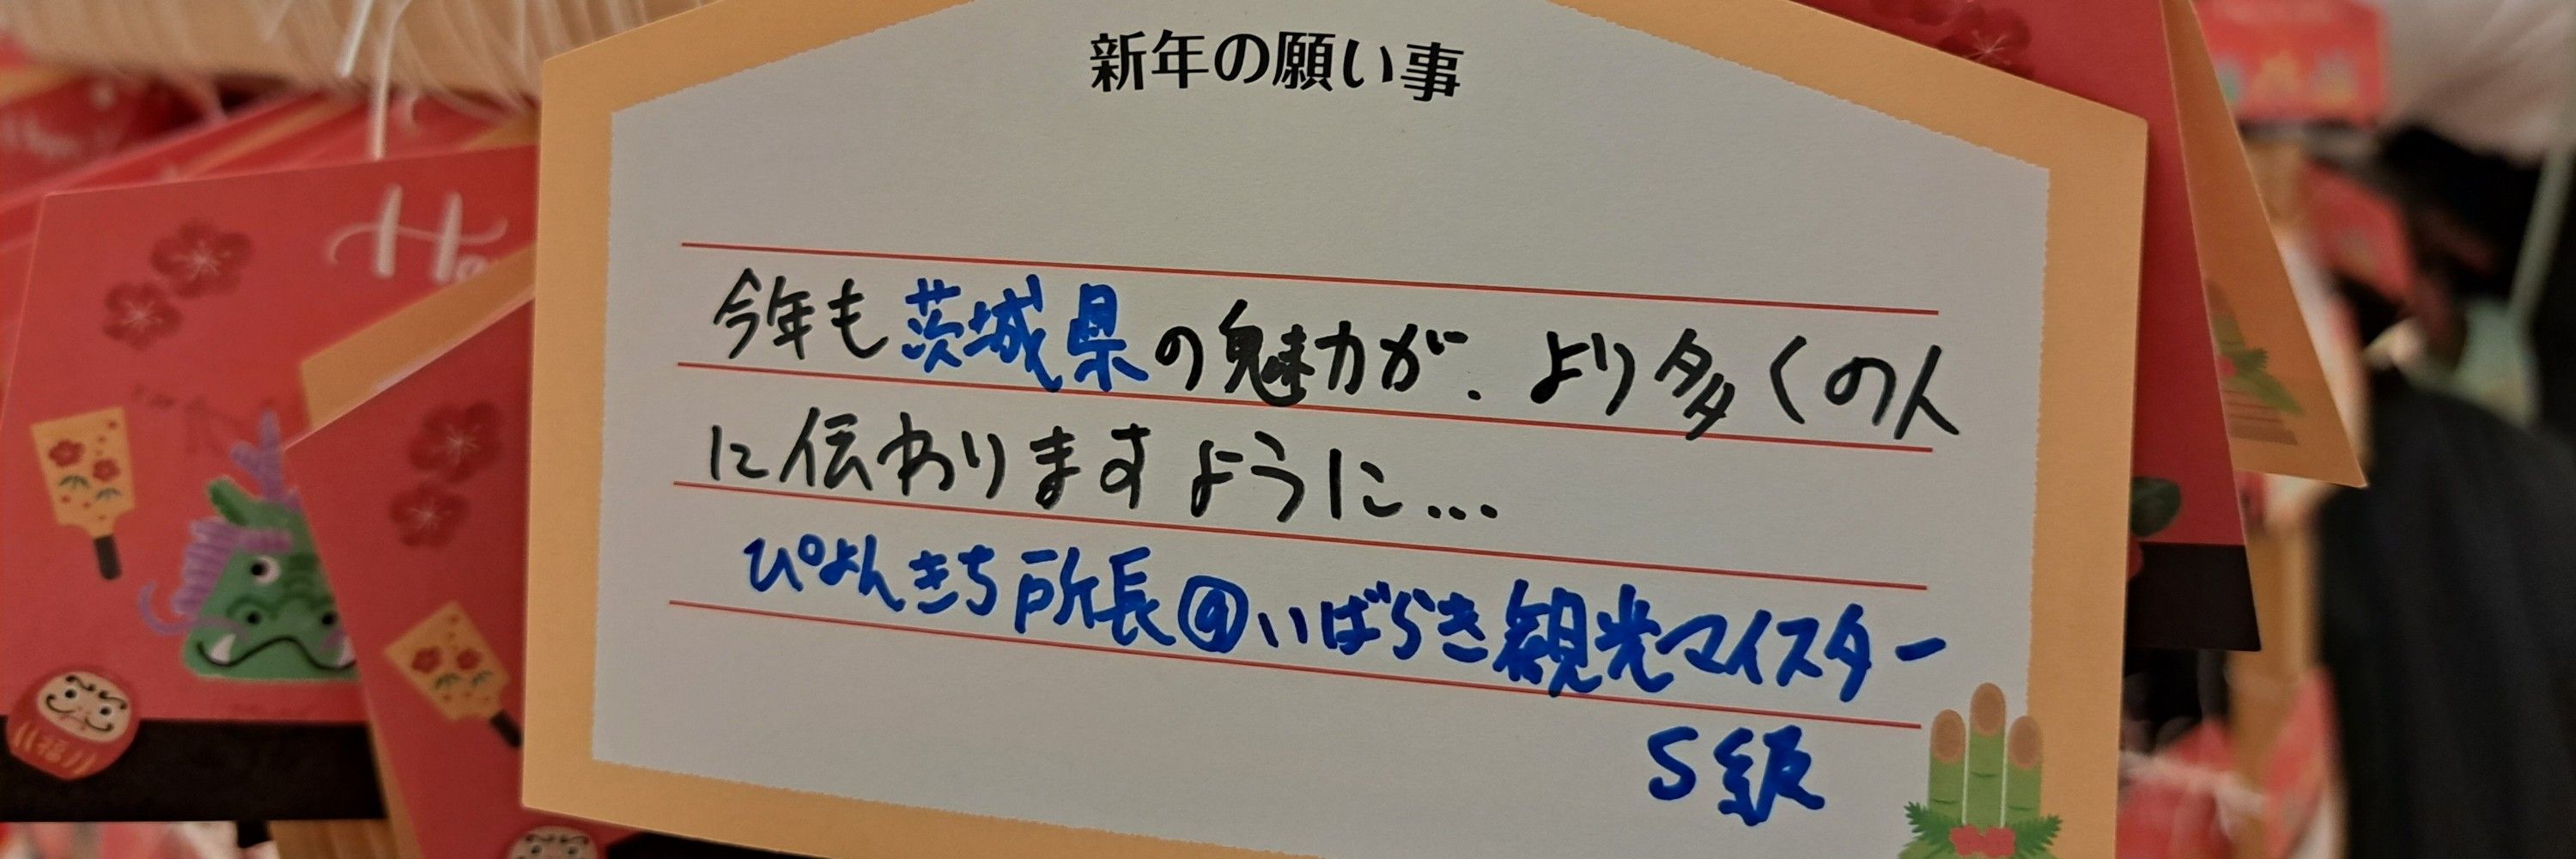 新年の願い事
今年も茨城県の魅力が、より多くの人
に伝わりますように…
ぴよんきち所長@いばらき観光マイスター
S級
Ha
福